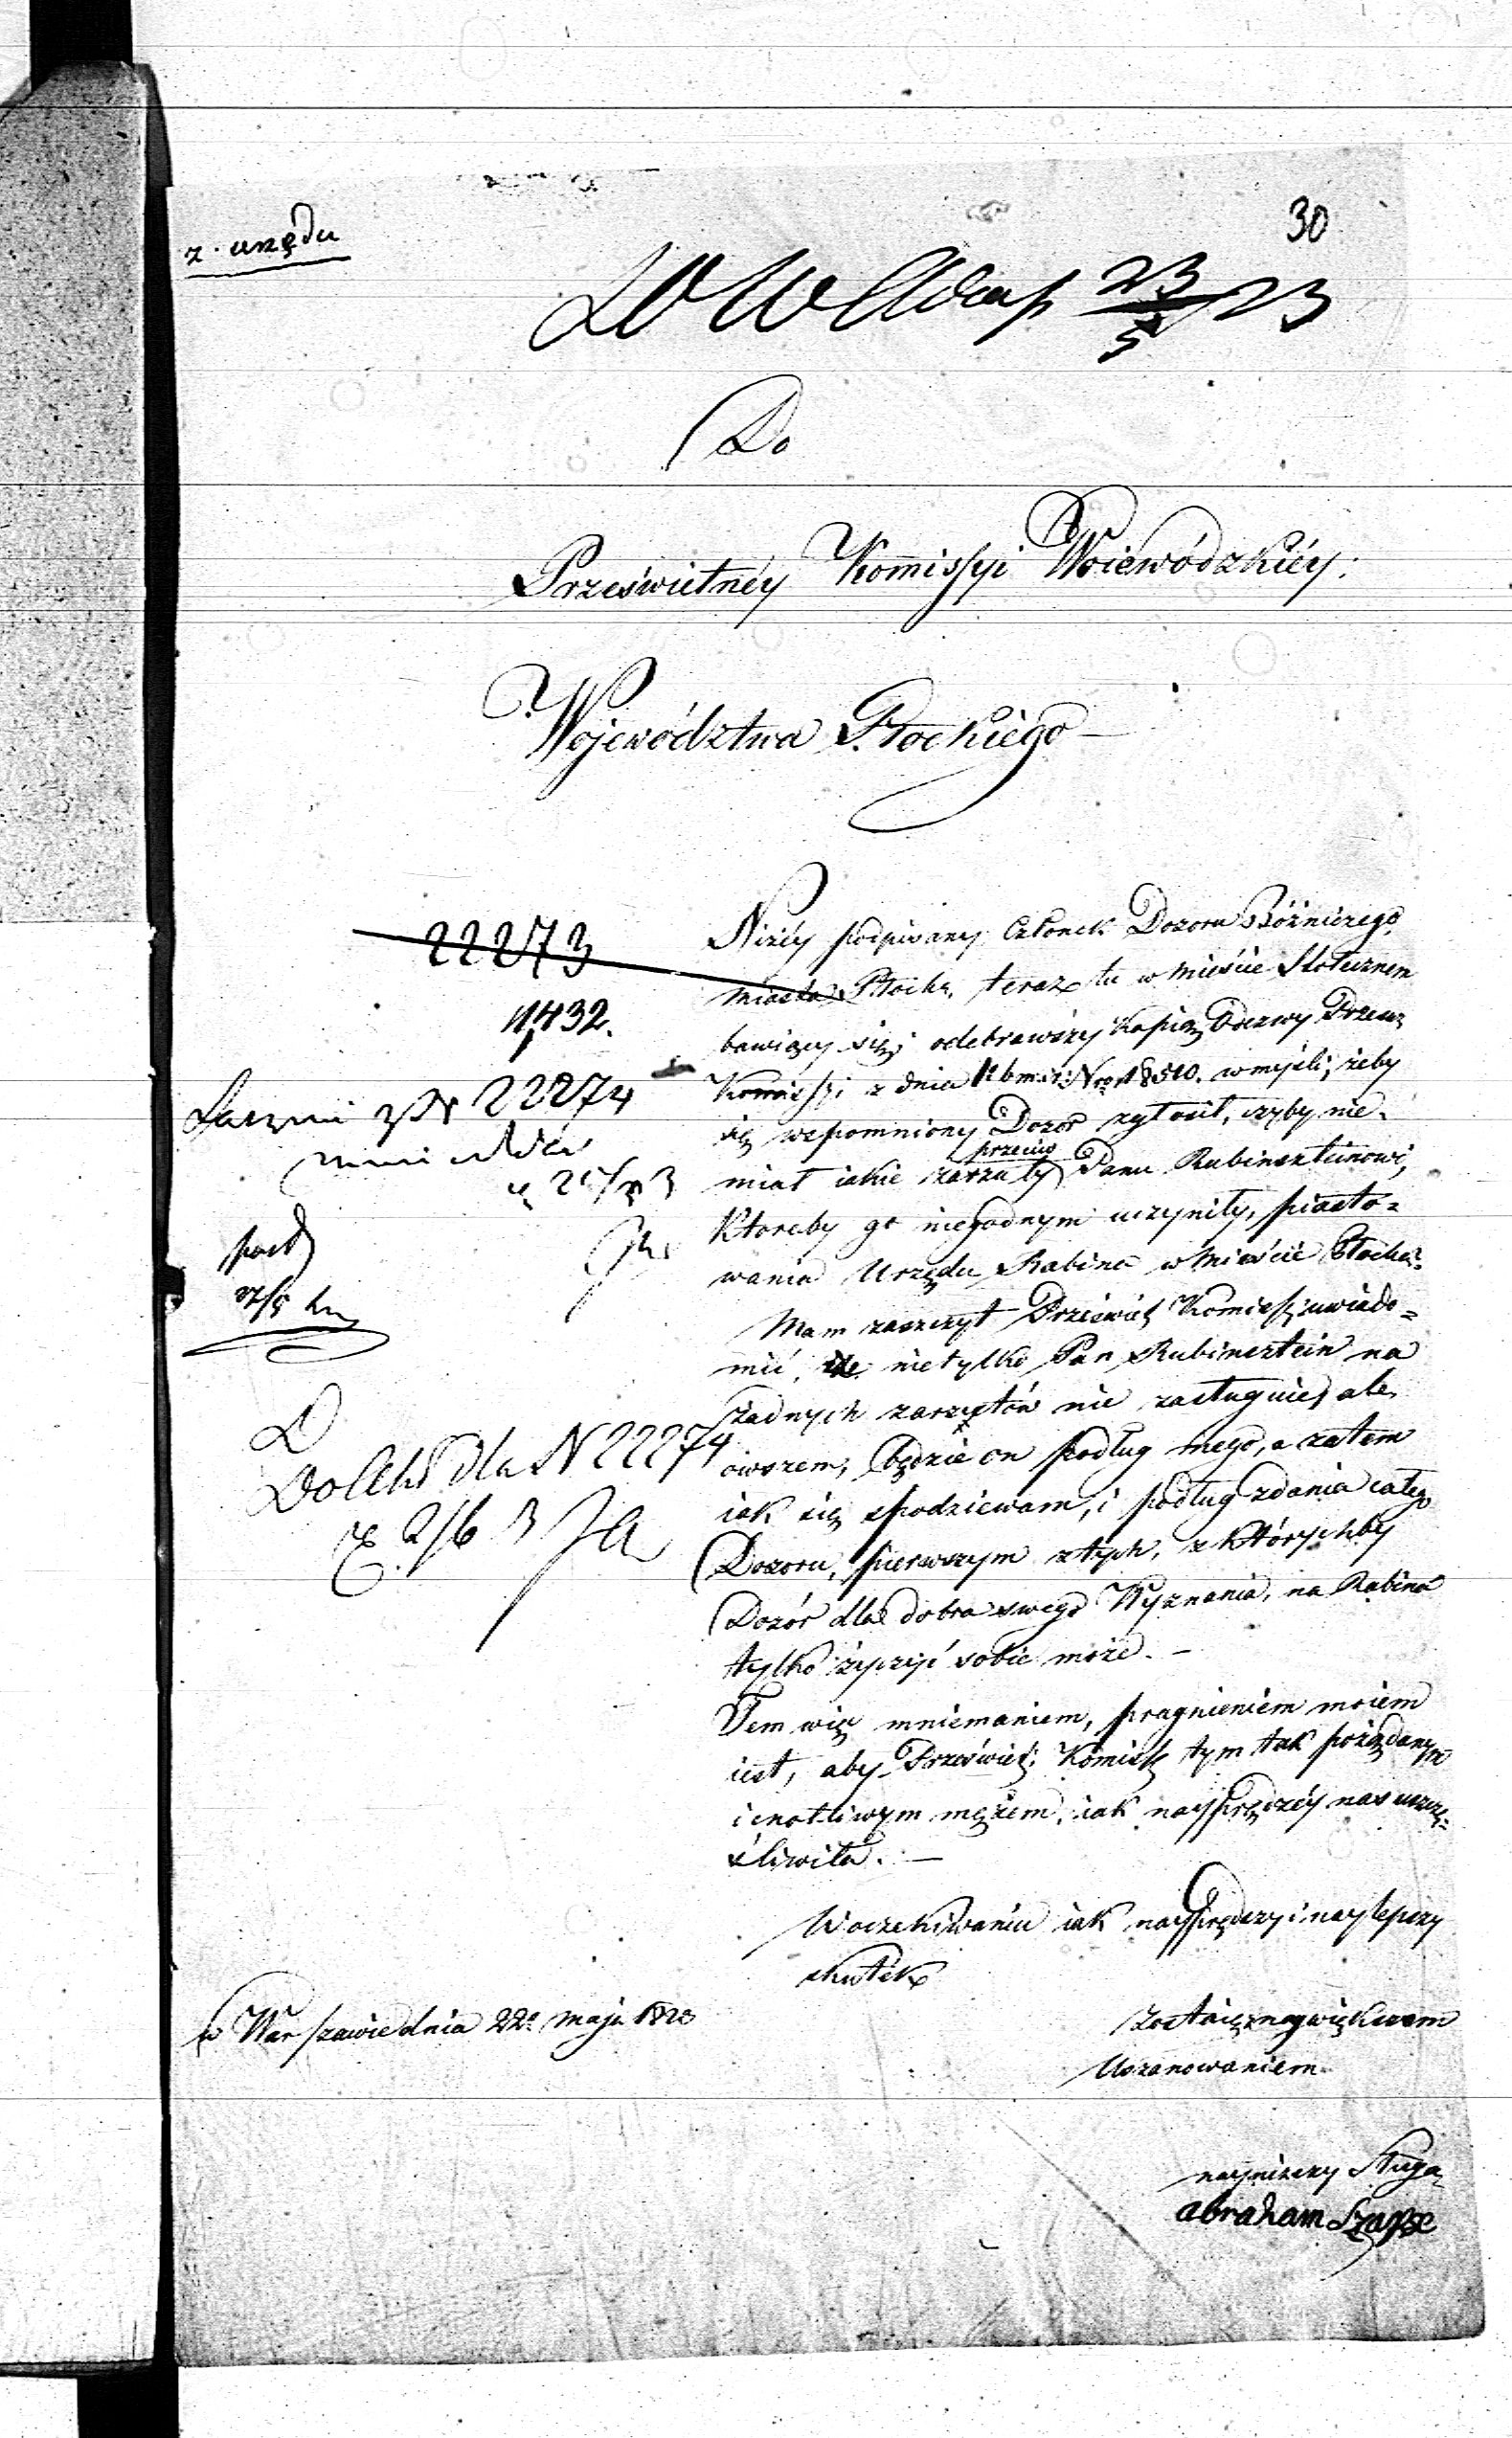 30
z urzędu
23/5 23
Do
Prześwietnéy Kommissyi Woiewódzkiéy
Województwa Płockiego
22273
1,432.
22274
Niżéy podpisany Członek Dozoru Bóżniczego
miasta Płocka, teraz tu w mieście Stołecznem
bawiący się, odebrawszy kopią Odezwy Przesw:
Komissyi z dnia 12 b. m. i r. Nro 18510. w myśli, żeby
się wspomniony Dozor zgłosił, czyby nie
miał iakie zarzuty przeciw Panu Rubinszteinowi,
któreby go niegodnym uczyniły, piasto=
wania Urzędu Rabina w Mieście Płocku.
Mam zaszczyt Prześwięt Komissy uwiado=
mić, że nietylko Pan Rubinsztein na
żadnych zarzutów nie zasługuie, ale
owszem, będzie on podług mego, a zatem
iak się spodziewam, i podług zdania całego
Dozoru, pierwszym z tych, z którychby
Dozór dla dobra swego Wyznania, na Rabina
tylko życzyć sobie może. —
Tem więc mniemaniem, pragnieniem moiem
iest, aby Prześwięt: Komisy tym tak pożądanym
i cnotliwym mężem, iak nayprędzéy nas uszczę=
śliwiła. —
W oczekiwaniu iak nayprędszy i naylepszy
skutek
zostaię z naywiększem
Uszanowaniem
w Warszawie dnia 22o maja 1823
nayniższy Sługa
abraham Szapse
Do Akt dla N 22274